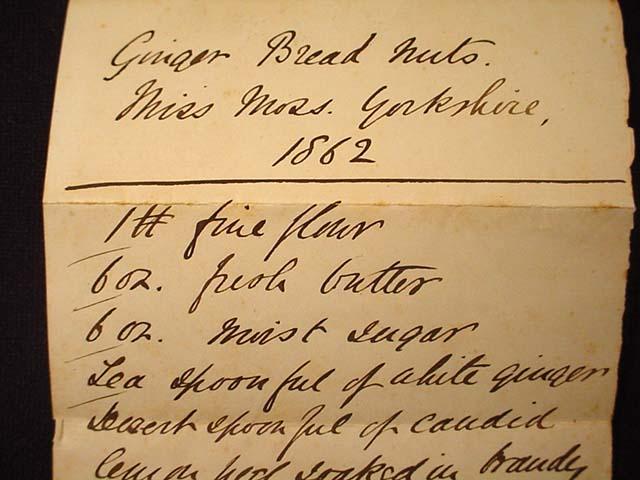 Ginger Bread Nuts.
Miss Moss. Yorkshire,
1862
1 ℔ fine flour
6 oz. fresh butter
6 oz. moist sugar
Tea spoonful of white ginger
Desert spoonful of candid
lemon peel soaked in brandy